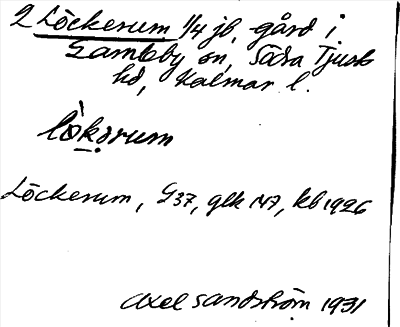 2 Löckerum 1/4 jb, gård i
Gamleby sn, Södra Tjusts
hd, Kalmar l.
lö̀kǝrum
Löckerum, G37, glk 147, kb 1926
Axel Sandström 1931